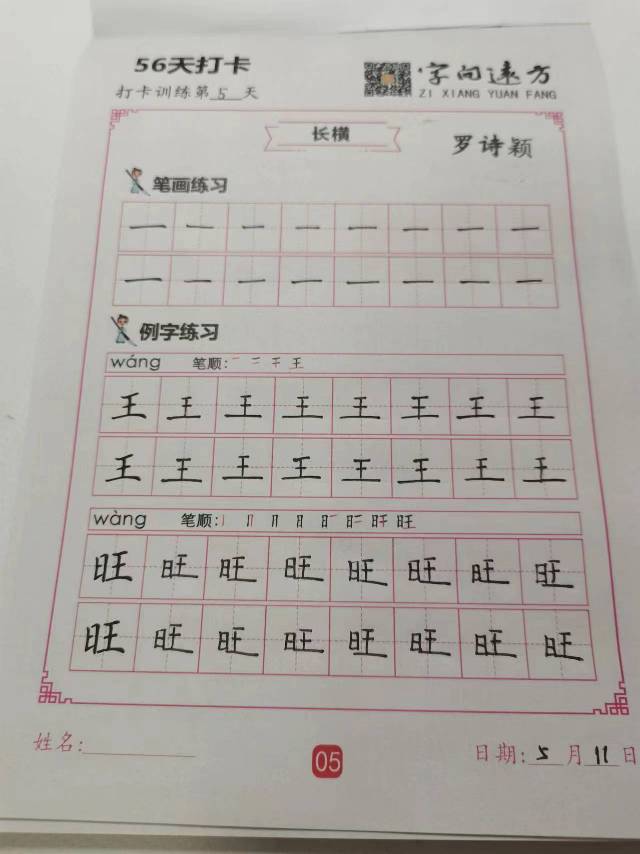 56天打卡
字向远方
打卡训练第5天
ZI XIANG YUAN FANG
长横
罗诗颖
笔画练习
一 一 一 一 一 一 一 一
一 一 一 一 一 一 一 一
例字练习
wáng 笔顺: 一 二 干 王
王 王 王 王 王 王 王 王
王 王 王 王 王 王 王 王
wàng 笔顺: 旺
旺 旺 旺 旺 旺 旺 旺 旺
旺 旺 旺 旺 旺 旺 旺 旺
姓名:
05
日期: 5 月 11 日